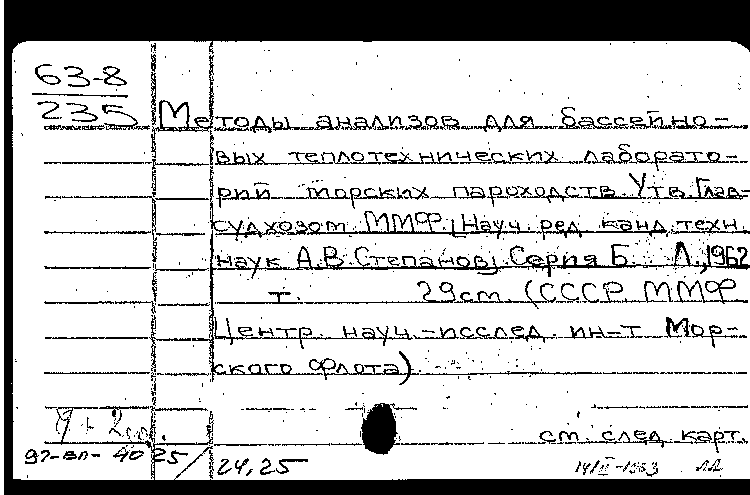 63-8
235
Методы анализов для бассейно-
вых теплотехнических лаборато-
рий морских пароходств. Утв. Глав-
судхозом ММФ. [Науч. ред. канд. техн.
наук А.В. Степанов]. Серия Б. Л., 1962
т. 29см. (СССР. ММФ.
Центр. науч.-исслед. ин-т Мор-
ского флота).
см. след. карт.
97-вл- 40 25 / 24,25
14/II-1963